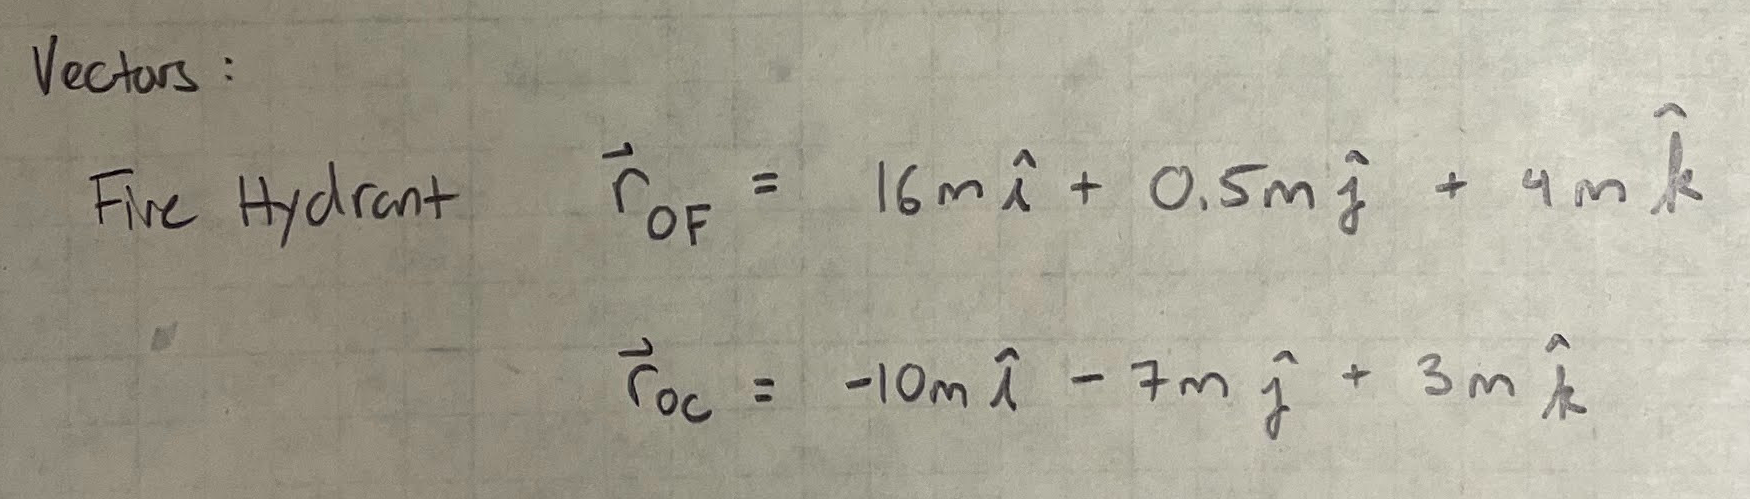 Vectors:
Fire Hydrant r⃗_OF = 16m î + 0.5m ĵ + 4m k̂
r⃗_OC = -10m î - 7m ĵ + 3m k̂